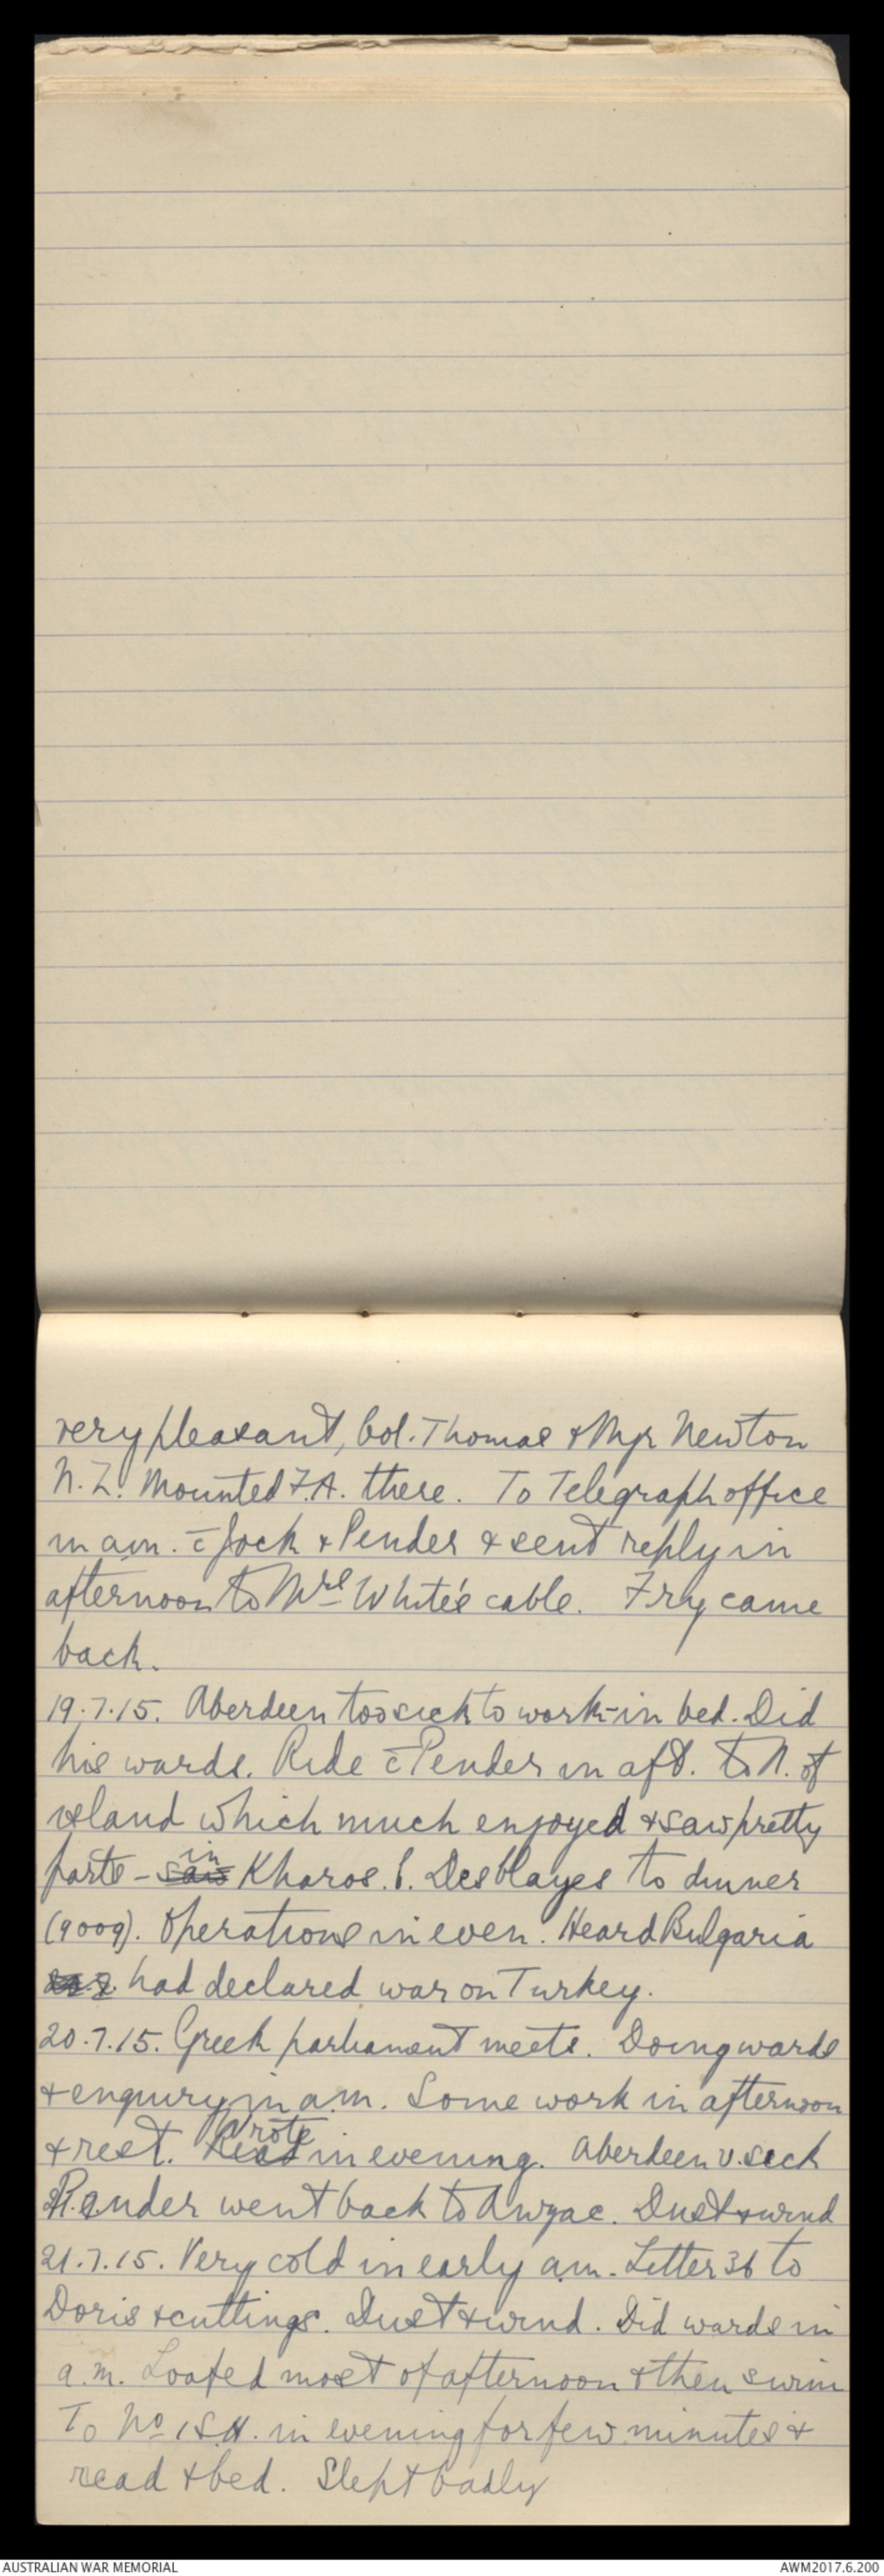 very pleasant, Col. Thomas & Mjr Newton
N.Z. Mounted F.A. there. To Telegraph office
in a.m. c̄ Jock & Pender & sent reply in
afternoon to Mrs White's cable. Fry came
back.
19.7.15. Aberdeen too sick to work - in bed. Did
his wards. Ride c̄ Pender in aft. to N. of
island which much enjoyed & saw pretty
parts - saw in Kharos. C. Des Blayes to dinner
(9009). Operations in even. Heard Bulgaria
had declared war on Turkey.
20.7.15. Greek parliament meets. Doing wards
& enquiry in a.m. Some work in afternoon
& rest. Read Wrote in evening. Aberdeen v. sick
Pender went back to Anzac. Dust & wind
21.7.15. Very cold in early a.m. Letter 36 to
Doris & cuttings. Dust & wind. Did wards in
a.m. Loafed most of afternoon & then swim
To No 1 S.H. in evening for few minutes &
read & bed. Slept badly
AUSTRALIAN WAR MEMORIAL
AWM2017.6.200